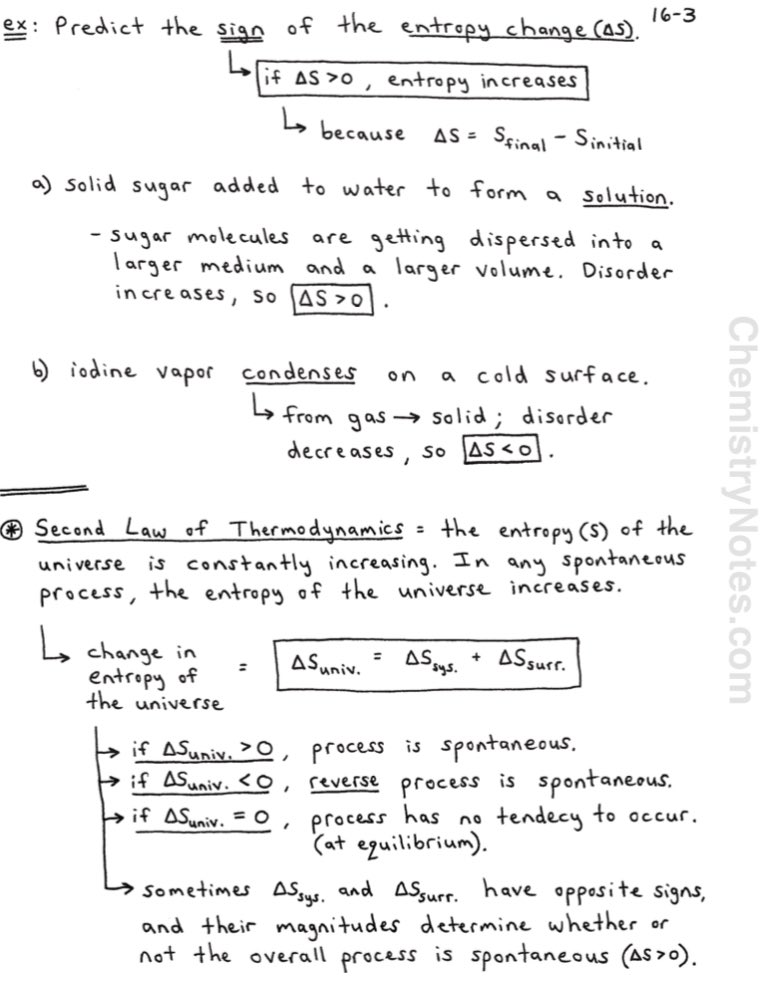 16-3
ex: Predict the sign of the entropy change (ΔS).
↳ if ΔS > 0 , entropy increases
↳ because ΔS = Sfinal - Sinitial
a) solid sugar added to water to form a solution.
- sugar molecules are getting dispersed into a
larger medium and a larger volume. Disorder
increases, so ΔS > 0 .
b) iodine vapor condenses on a cold surface.
↳ from gas → solid ; disorder
decreases , so ΔS < 0 .
⊛ Second Law of Thermodynamics = the entropy (S) of the
universe is constantly increasing. In any spontaneous
process, the entropy of the universe increases.
↳ change in
entropy of = ΔSuniv. = ΔSsys. + ΔSsurr.
the universe
→ if ΔSuniv. > 0 , process is spontaneous.
→ if ΔSuniv. < 0 , reverse process is spontaneous.
→ if ΔSuniv. = 0 , process has no tendecy to occur.
(at equilibrium).
↳ sometimes ΔSsys. and ΔSsurr. have opposite signs,
and their magnitudes determine whether or
not the overall process is spontaneous (ΔS>0).
ChemistryNotes.com